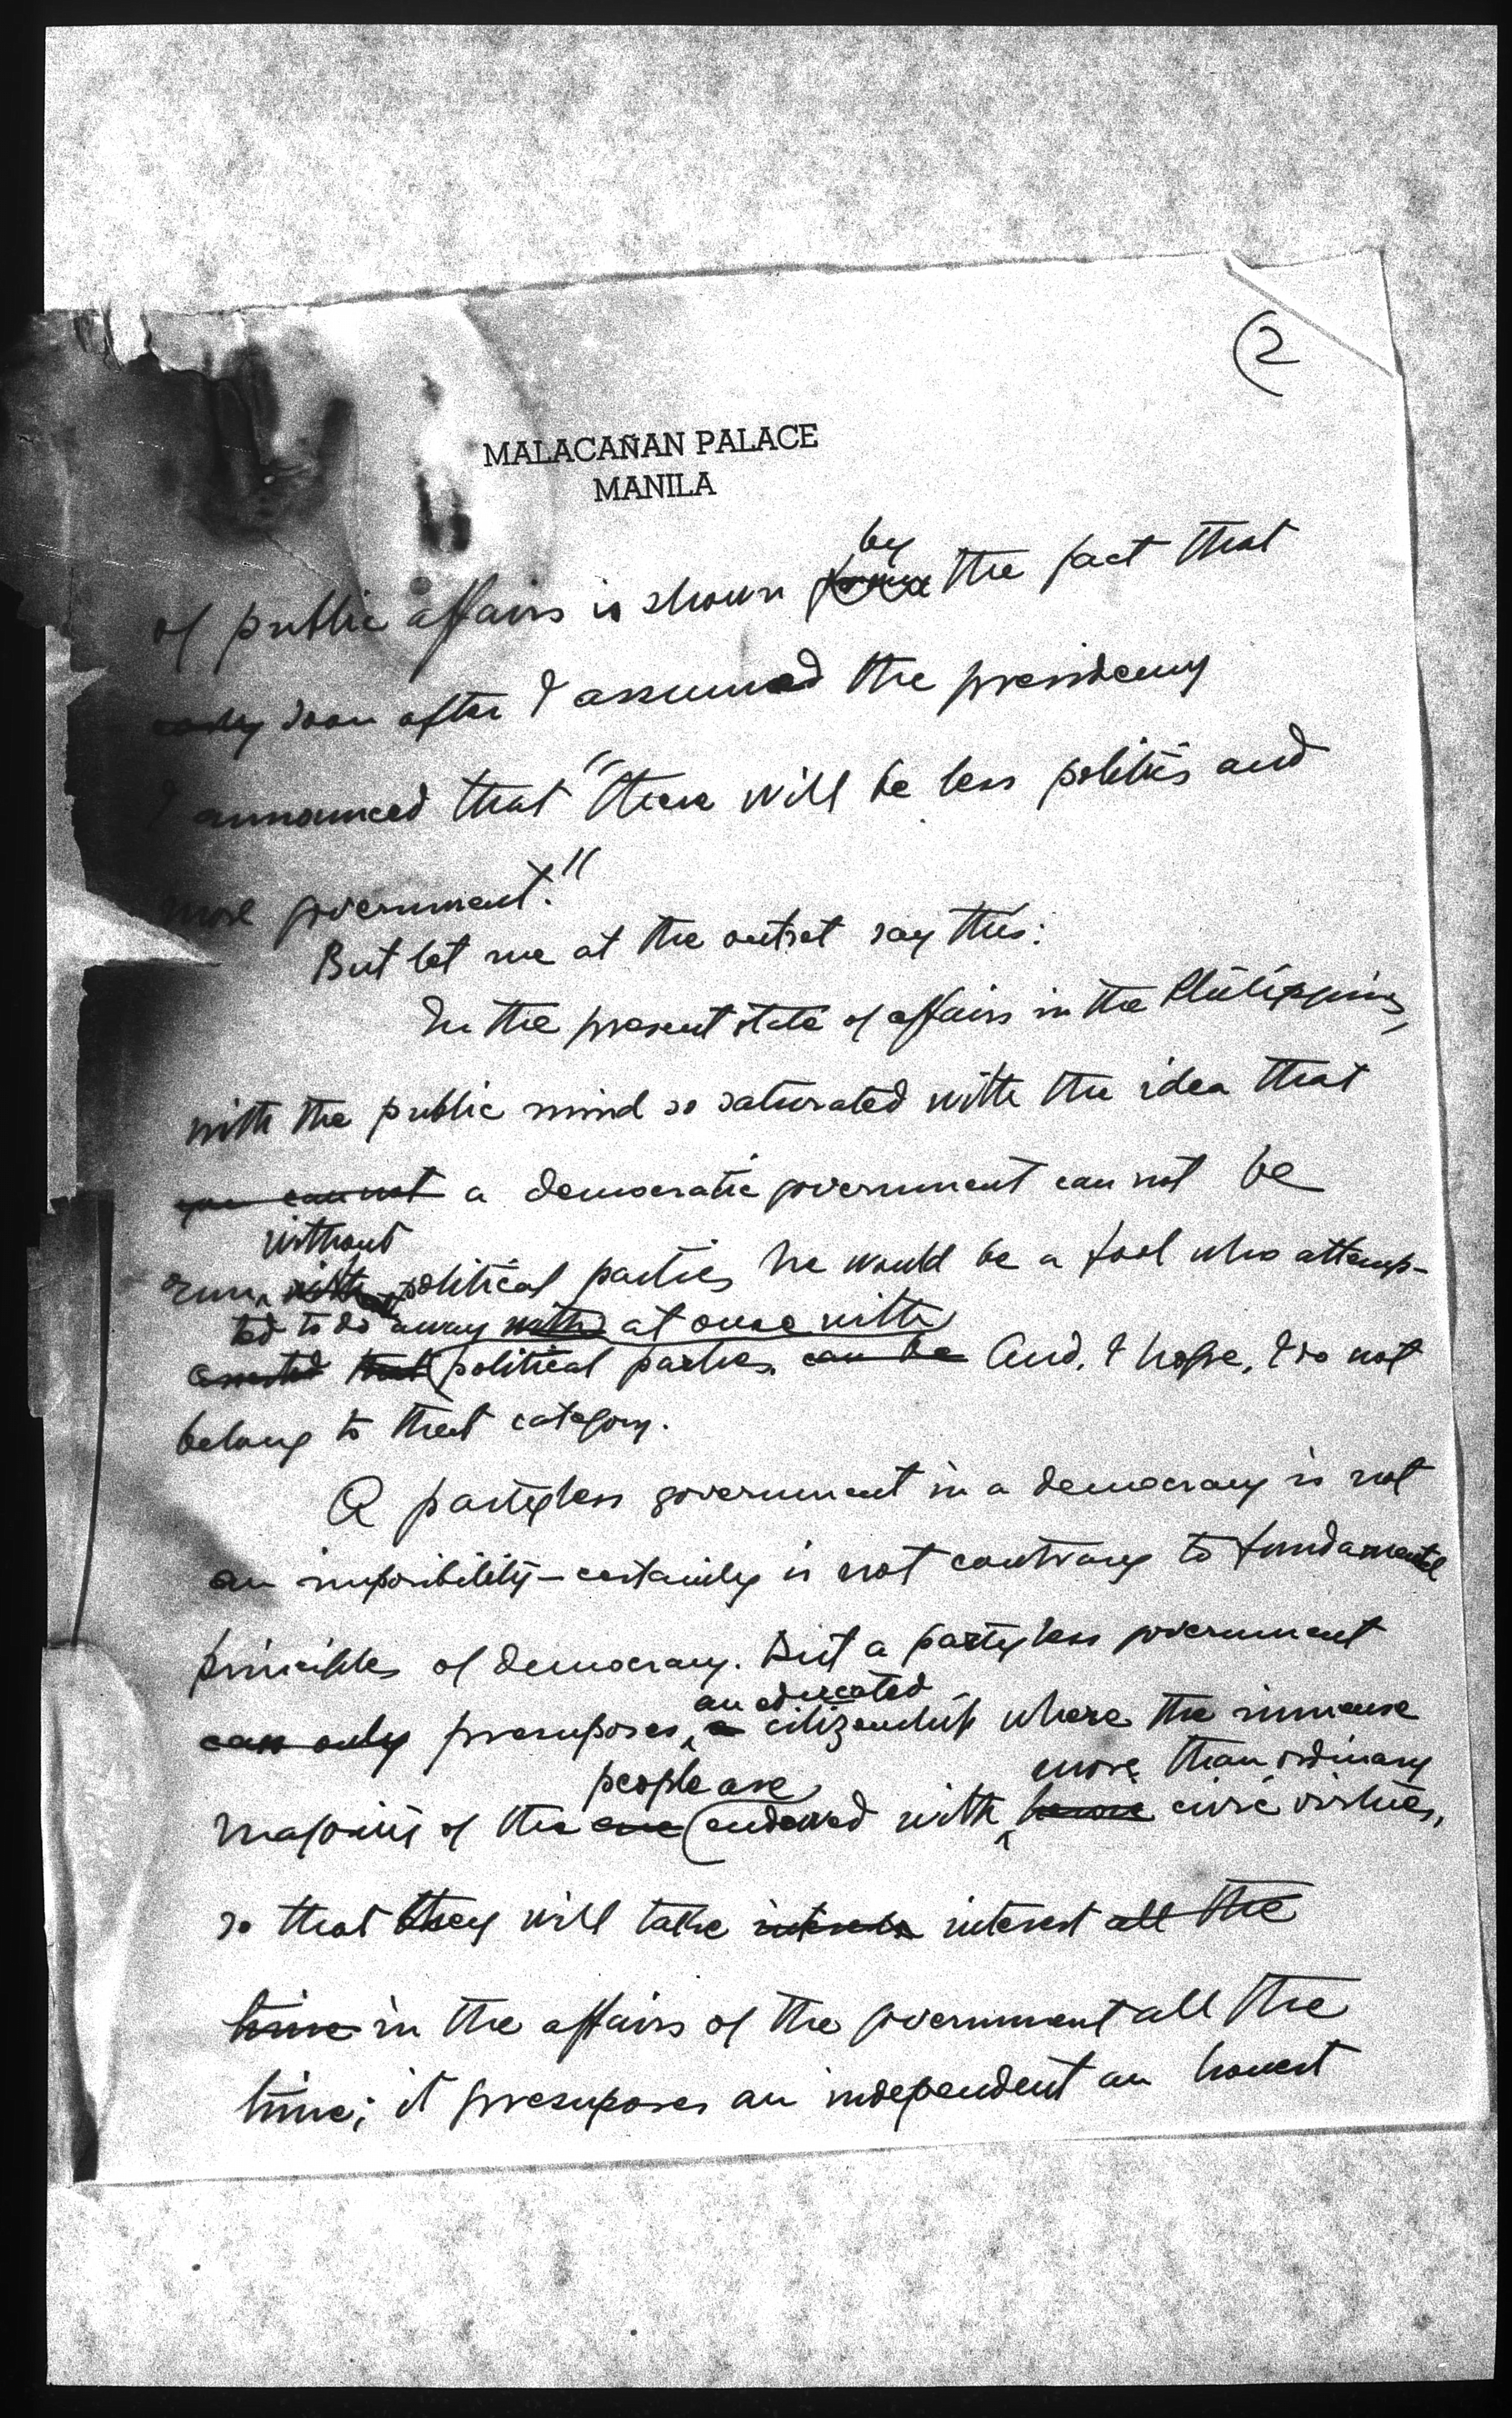 (2
MALACAÑAN PALACE
MANILA
by
of public affairs is shown the fact that
soon after I assumed the presidency
I announced that "there will be less politics and
more government."
But let me at the outset say this:
In the present state of affairs in the Philippines,
with the public mind so saturated with the idea that
you cannot a democratic government can not be
without
run political parties, he would be a fool who attemp-
ted to do away with at once with
that political parties can be And, I hope, I do not
belong to that category.
A partyless government in a democracy is not
an imposibility—certainly is not contrary to fundamental
principles of democracy. But a partyless government
an educated
can only presuposes a citizenship where the inmense
more than ordinary
people are
majority of the endowed with heroic civic virtues,
so that they will take interest all the
time in the affairs of the government all the
time; it presuposes an independent an honest